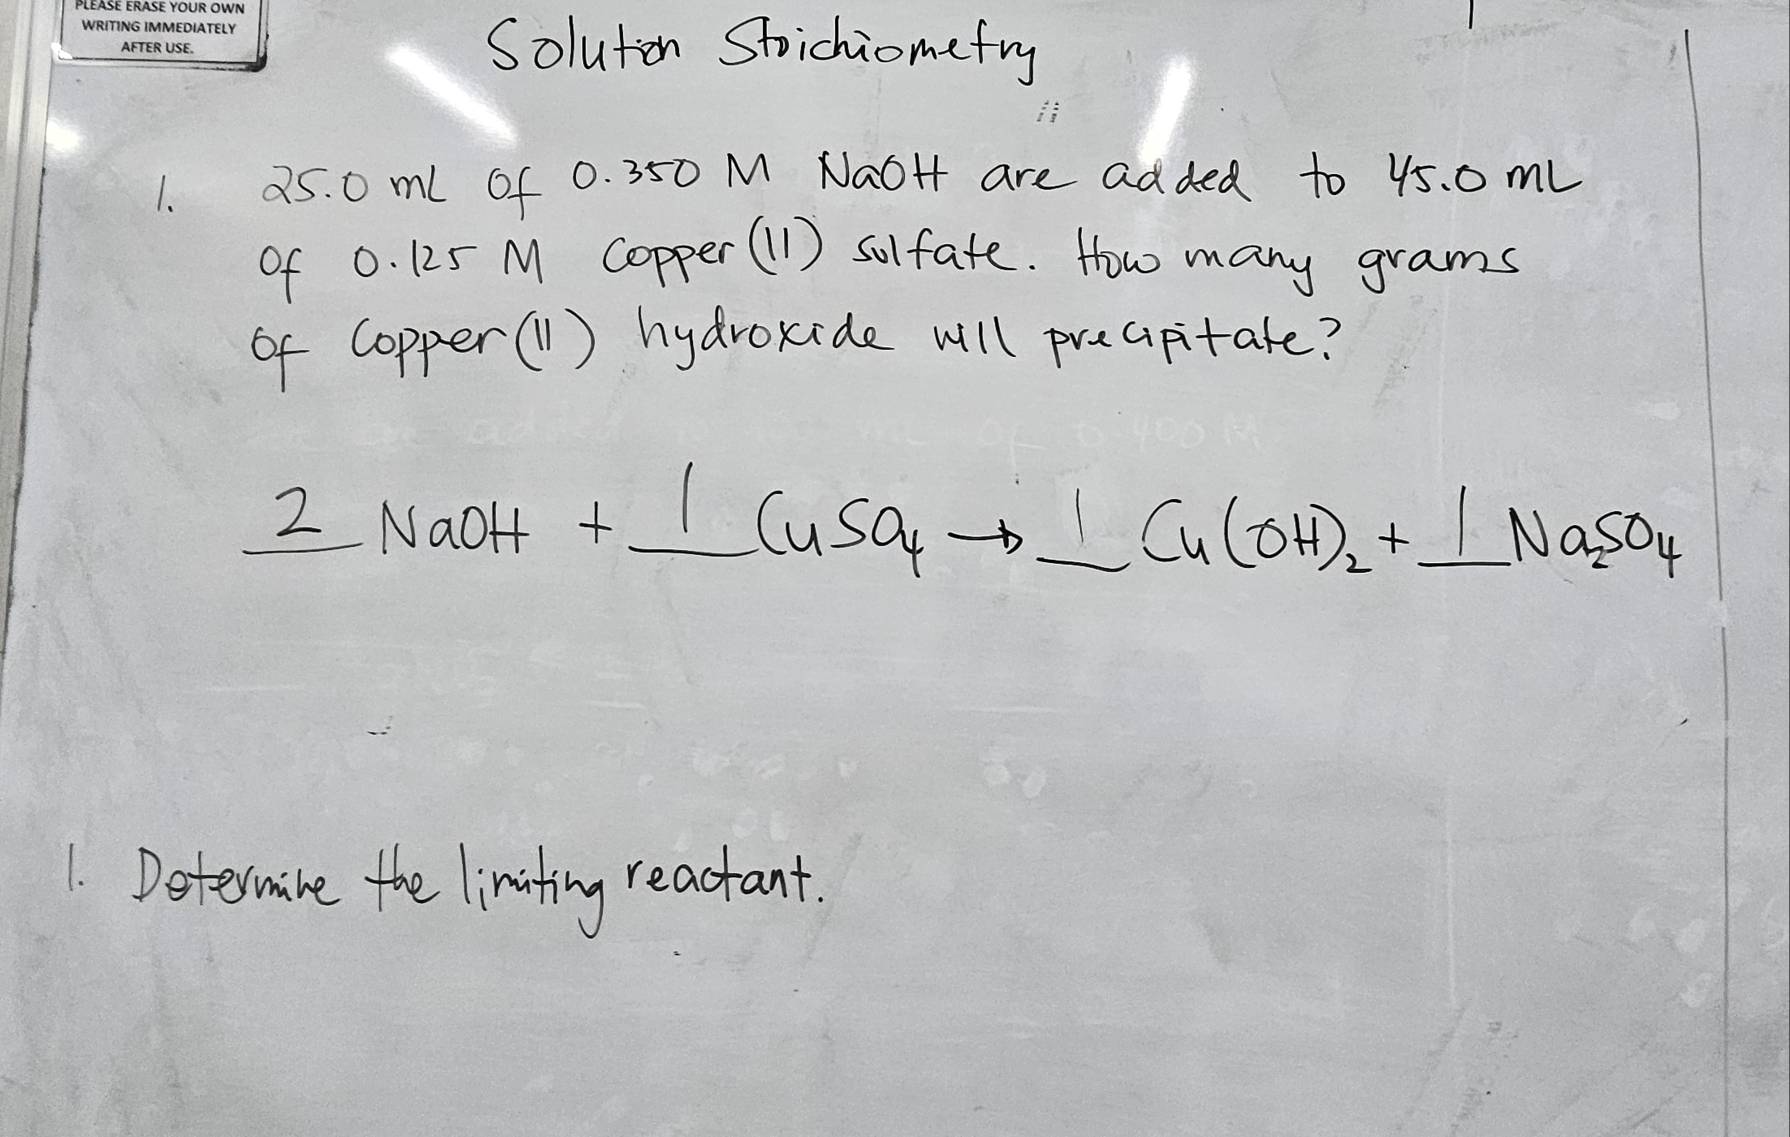 PLEASE ERASE YOUR OWN
WRITING IMMEDIATELY
AFTER USE.
Solution Stoichiometry
1. 25.0 mL of 0.350 M NaOH are added to 45.0 mL
of 0.125 M Copper (II) sulfate. How many grams
of Copper (II) hydroxide will precipitate?
2 NaOH + 1 CuSO₄ → 1 Cu(OH)₂ + 1 Na₂SO₄
1. Determine the limiting reactant.